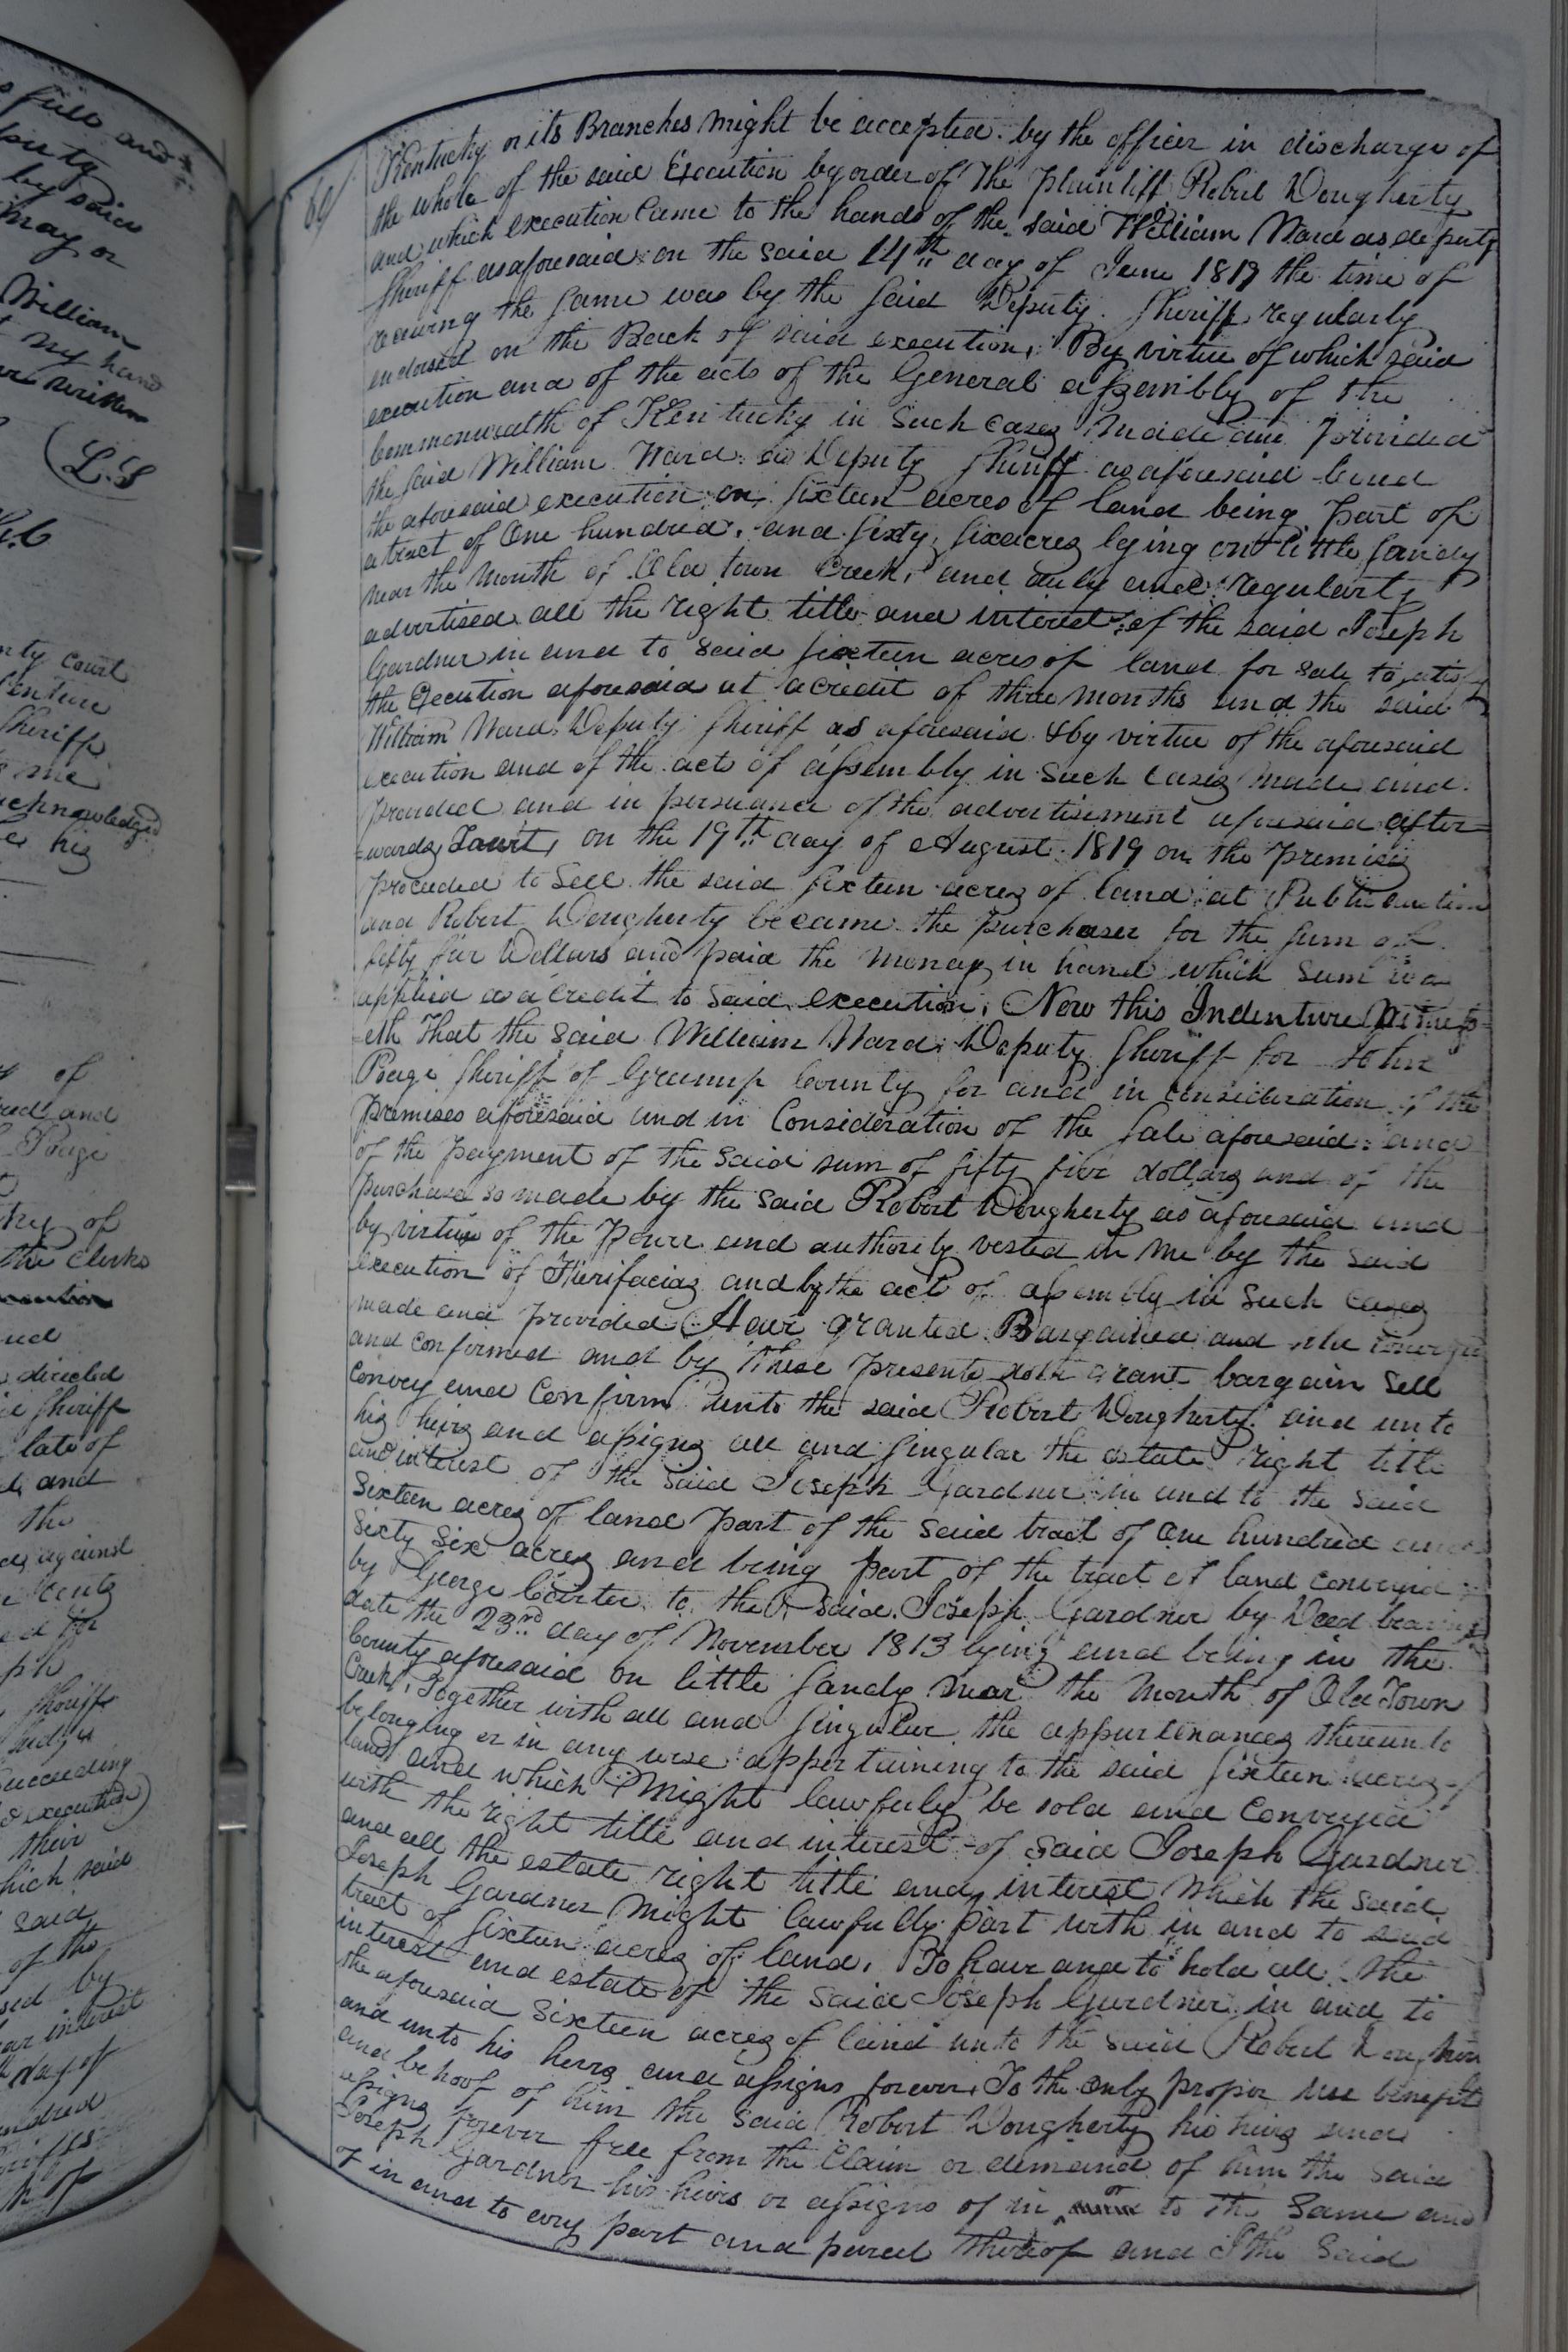 full and
by said
may or
William
my hand
written
(L.S
nty Court
Sheriff
me
acknowledged
his
of
the Clerks
directed
Sheriff
late of
and
the
against
Sheriff
succeeding
execution)
their
which said
said
of the
by
interest
day of
Kentucky or its Branches might be accepted by the officer in discharge of
the whole of the said Execution by order of the plaintiff Robert Dougherty
and which execution Came to the hands of the said William Ward as deputy
Sheriff as aforesaid on the said 14th day of June 1819 the time of
receiving the same was by the said Deputy Sheriff regularly
endorsed on the Back of said execution, By virtue of which said
execution and of the acts of the General assembly of the
Commonwealth of Kentucky in Such Cases Made and provided
the said William Ward as Deputy Sheriff as aforesaid levied
the aforesaid execution on sixteen acres of land being part of
a tract of One hundred and Sixty Six acres lying on little Sandy
near the Mouth of Old town Creek, and duly and regularly
advertised all the right title and interest of the said Joseph
Gardner in and to said sixteen acres of land for sale to satisfy
the Execution aforesaid at a credit of three Months and the said
William Ward Deputy Sheriff as aforesaid & by virtue of the aforesaid
execution and of the acts of assembly in Such Cases made and
provided and in persuance of the advertisement aforesaid after=
=wards, Towit, on the 19th day of August 1819 on the premises
proceeded to Sell the said sixteen acres of land at Public auction
and Robert Dougherty became the purchaser for the Sum of
fifty five Dollars and paid the money in hand which sum was
applied as a Credit to said execution, Now this Indenture Witness=
eth That the said William Ward Deputy Sheriff for John
Poage Sheriff of Greenup County for and in consideration of the
premises aforesaid and in Consideration of the sale aforesaid and
of the payment of the said sum of fifty five dollars and of the
purchase so made by the said Robert Dougherty as aforesaid and
by virtue of the Power and authority vested in me by the said
execution of Fierifacias and by the act of assembly in Such cases
made and provided Have granted Bargained and
and confirmed and by these presents doth grant bargain Sell
convey and Confirm unto the said Robert Dougherty and unto
his heirs and assigns all and singular the estate right title
and interest of the said Joseph Gardner in and to the said
Sixteen acres of land part of the said tract of One hundred and
Sixty Six acres and being part of the tract of land conveyed
by George Carter to the said Joseph Gardner by Deed bearing
date the 23rd day of November 1813 lying and being in the
County aforesaid on little Sandy near the Mouth of Old Town
Creek, Together with all and singular the appurtenances thereunto
belonging or in any wise appertaining to the said sixteen acres of
land and which Might lawfuly be sold and Conveyed
with the right title and interest of said Joseph Gardner
and all the estate right title and interest Which the said
Joseph Gardner Might lawfully part with in and to said
tract of sixteen acres of land, To have and to hold all the
interest and estate of the said Joseph Gardner in and to
the aforesaid Sixteen acres of land unto the said Robert
and unto his heirs and assigns forever, To the only proper use benefit
and behoof of him the said Robert Dougherty his heirs and
assigns forever free from the Claim or demand of him the said
Joseph Gardner his heirs or assigns of in or to the Same and
of in and to every part and parcel thereof and I the Said